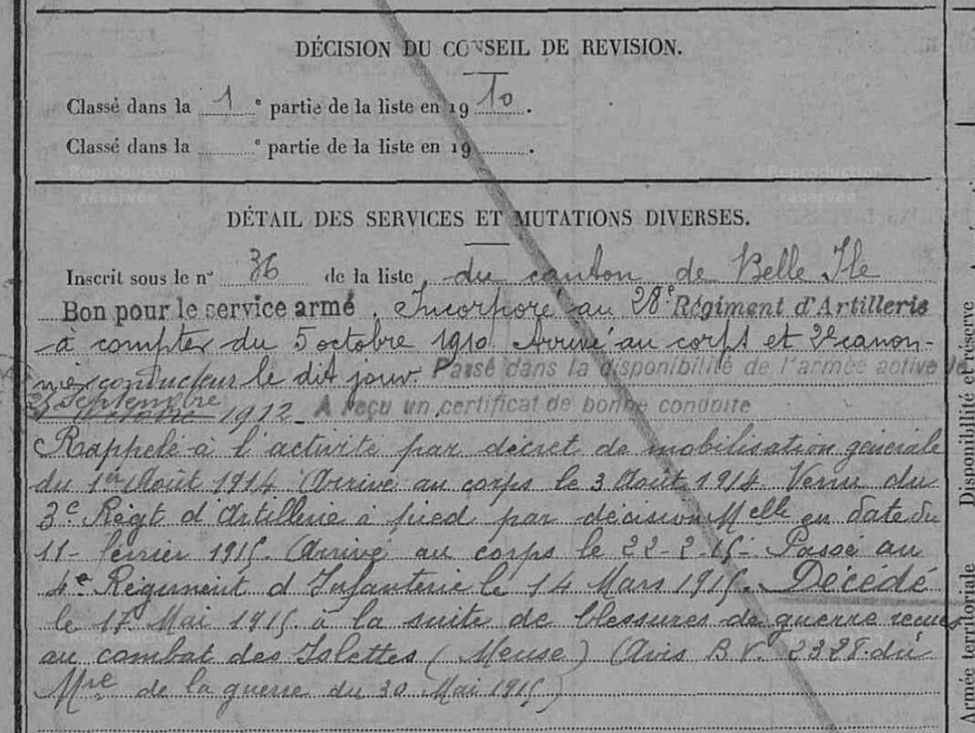 DÉCISION DU CONSEIL DE REVISION.
Classé dans la 1 e partie de la liste en 19 10 .
Classé dans la e partie de la liste en 19 .
Reproduction réservée
Reproduction réservée
DÉTAIL DES SERVICES ET MUTATIONS DIVERSES.
Inscrit sous le n° 36 de la liste du canton de Belle Ile
Bon pour le service armé. Incorporé au 28e Régiment d'Artillerie
à compter du 5 octobre 1910 Arrivé au corps et 2e canon-
nier conducteur le dit jour. Passé dans la disponibilité de l'armée active le
25 Septembre
1er Octobre 1912 A reçu un certificat de bonne conduite
Rappelé à l'activité par décret de mobilisation générale
du 1er Août 1914 Arrivé au corps le 3 Août 1914. Venu du
3e Régt d'Artillerie à pied par décision Melle en date du
11- février 1915. Arrivé au corps le 22-2-15- Passé au
4e Régiment d'Infanterie le 14 Mars 1915. Décédé
le 17 Mai 1915. à la suite de blessures de guerre reçues
au combat des Islettes (Meuse) (Avis B.V. 2328 du
Mre de la guerre du 30 Mai 1915)
Disponibilité et réserve
Armée territoriale